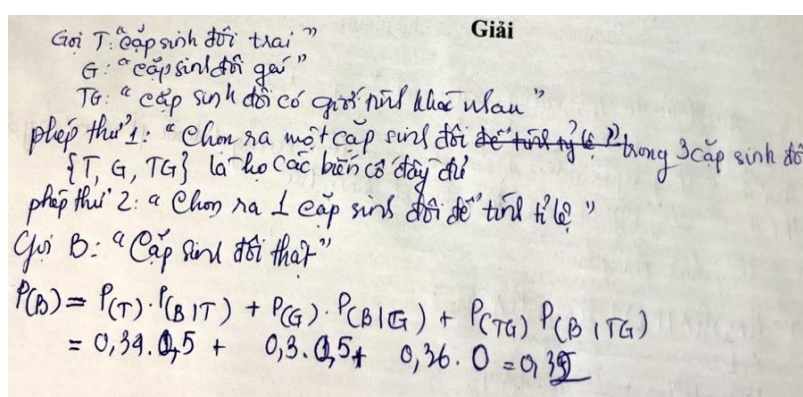 Giải
Gọi T: "Cặp sinh đôi trai"
G: "cặp sinh đôi gái"
TG: "cặp sinh đôi có giới tính khác nhau"
phép thử 1: "Chọn ra một cặp sinh đôi để tính tỷ lệ" trong 3 cặp sinh đô
{T, G, TG} là họ các biến cố đầy đủ
phép thử 2: "Chọn ra 1 cặp sinh đôi để tính tỉ lệ"
Gọi B: "Cặp sinh đôi thật"
P(B) = P(T).P(B|T) + P(G).P(B|G) + P(TG) P(B|TG)
= 0,34.0,5 + 0,3.0,5 + 0,36.0 =